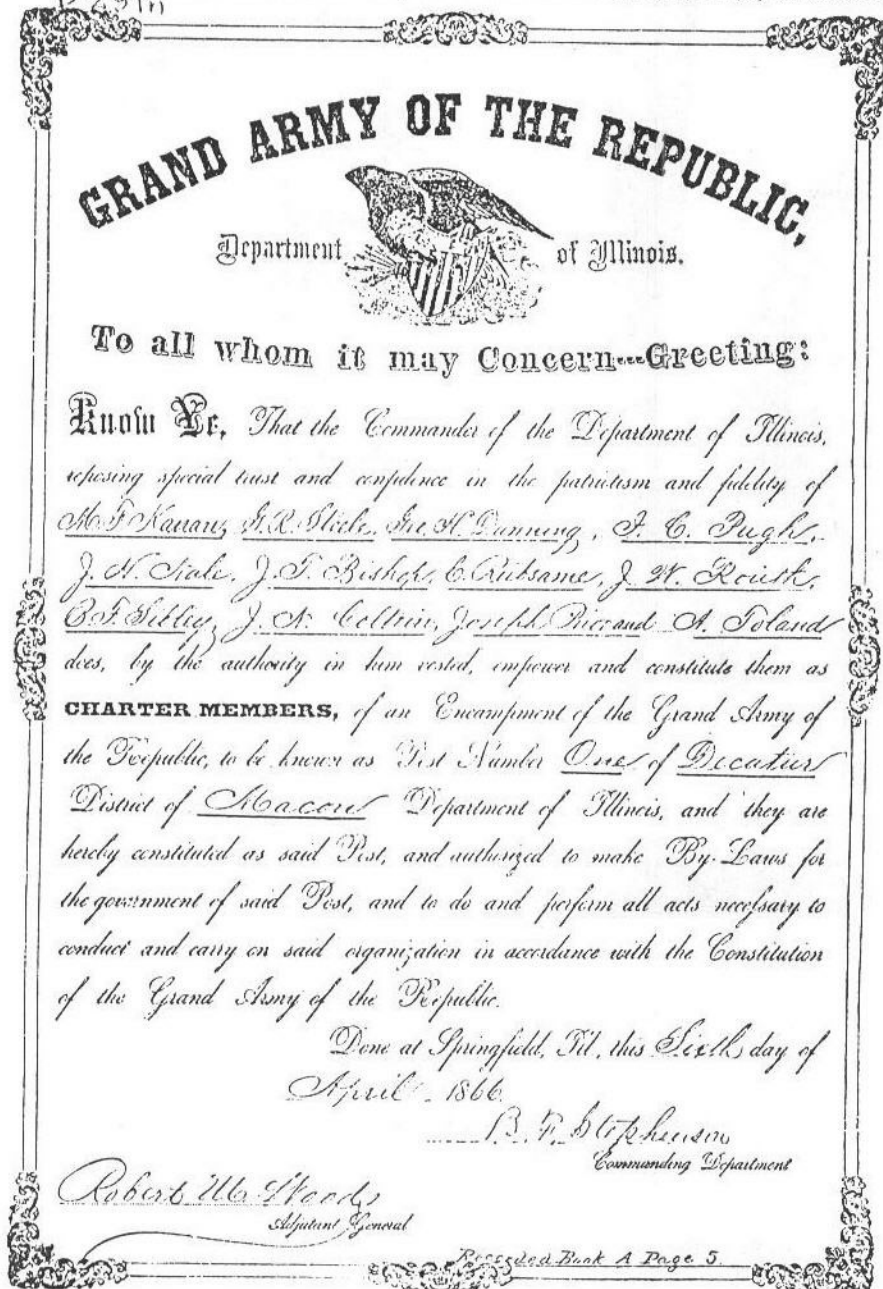 GRAND ARMY OF THE REPUBLIC,
Department of Illinois.
To all whom it may Concern---Greeting:
Know Ye, That the Commander of the Department of Illinois,
reposing special trust and confidence in the patriotism and fidelity of
M. F. Kanan, G. R. Steele, Geo. H. Dunning, I. C. Pugh,
J. H. Nale, J. T. Bishop, C. Riebsame, J. W. Routh,
B. F. Sibley, J. N. Coltrin, Joseph Prior and A. Toland
does, by the authority in him vested, empower and constitute them as
CHARTER MEMBERS, of an Encampment of the Grand Army of
the Republic, to be known as Post Number One of Decatur
District of Macon Department of Illinois, and they are
hereby constituted as said Post, and authorized to make By-Laws for
the government of said Post, and to do and perform all acts necessary to
conduct and carry on said organization in accordance with the Constitution
of the Grand Army of the Republic.
Done at Springfield, Ill, this Sixth day of
April 1866.
B. F. Stephenson
Commanding Department
Robert M. Woods
Adjutant General
Recorded Book A Page 5.